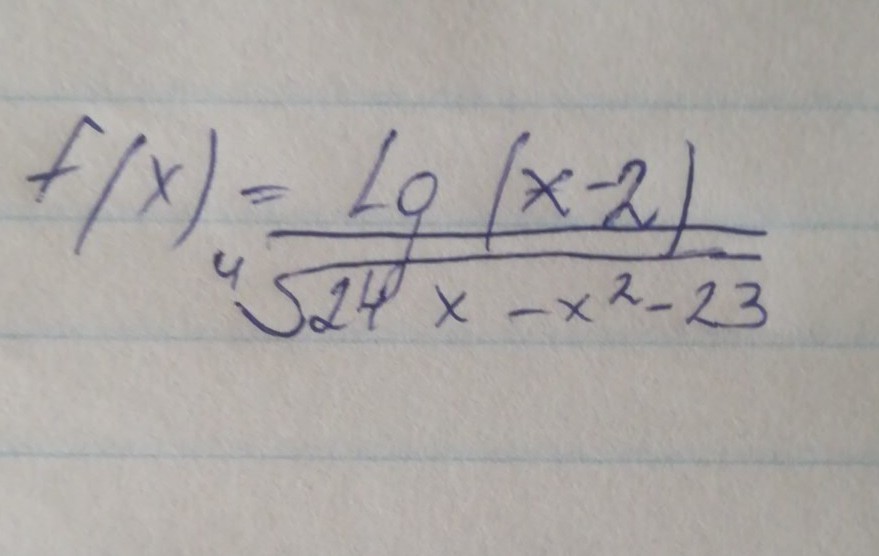 f(x) = Lg (x-2)
⁴√24x -x²-23